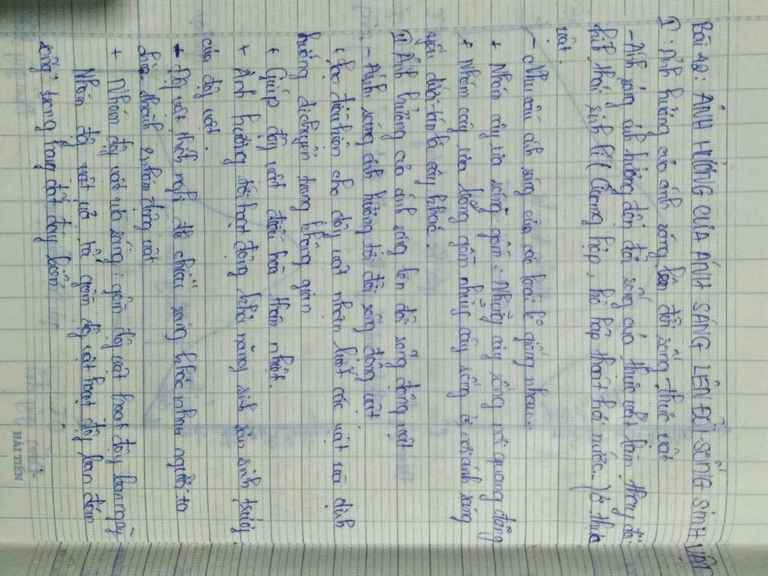 Bài 42: ẢNH HƯỞNG CỦA ÁNH SÁNG LÊN ĐỜI SỐNG SINH VẬT
I: Ảnh hưởng của ánh sáng lên đời sống thực vật
- Ánh sáng ảnh hưởng đến đời sống của thực vật làm thay đổi
hình thái sinh lí (Quang hợp, hô hấp thoát hơi nước...) ở thực
vật.
- Nhu cầu ánh sáng của các loài k giống nhau.
+ Nhóm cây ưa sáng gồm: Những cây sống nơi quang đãng
+ Nhóm cây ưa bóng gồm những cây sống ở nơi ánh sáng
yếu dưới tán lá cây khác.
II Ảnh hưởng của ánh sáng lên đời sống động vật
- Ánh sáng ảnh hưởng tới đời sống động vật
+ Tạo điều kiện cho động vật nhận biết các vật và định
hướng di chuyển trong không gian
+ Giúp động vật điều hòa thân nhiệt.
+ Ảnh hưởng tới hoạt động khả năng sinh sản sinh trưởng
của động vật.
+ Động vật thích nghi đk chiếu sáng khác nhau người ta
chia thành 2 nhóm động vật
+ Nhóm động vật ưa sáng: gồm động vật hoạt động ban ngày
Nhóm động vật ưa tối gồm động vật hoạt động ban đêm
sống trong hang đất đáy biển
HẢI TIẾN